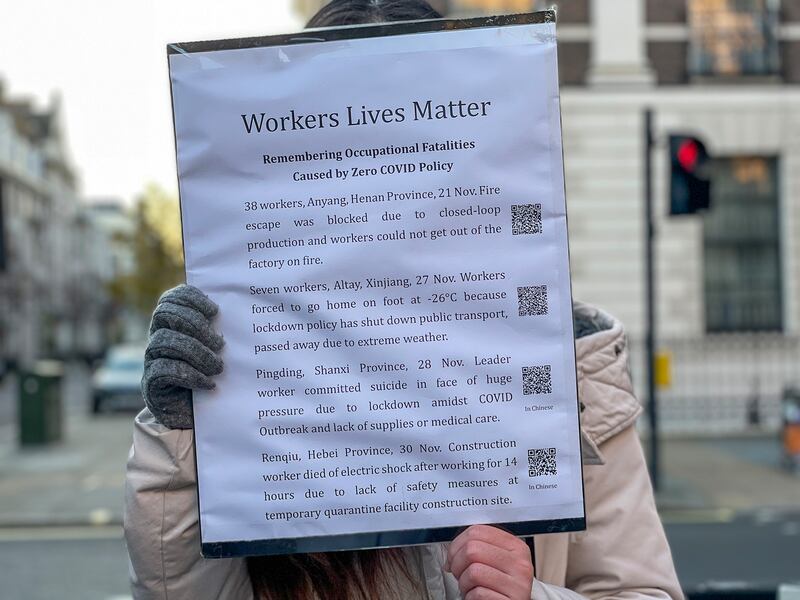 Workers Lives Matter
Remembering Occupational Fatalities
Caused by Zero COVID Policy
38 workers, Anyang, Henan Province, 21 Nov. Fire
escape was blocked due to closed-loop
production and workers could not get out of the
factory on fire.
Seven workers, Altay, Xinjiang, 27 Nov. Workers
forced to go home on foot at -26°C because
lockdown policy has shut down public transport,
passed away due to extreme weather.
Pingding, Shanxi Province, 28 Nov. Leader
worker committed suicide in face of huge
pressure due to lockdown amidst COVID
Outbreak and lack of supplies or medical care.
In Chinese
Renqiu, Hebei Province, 30 Nov. Construction
worker died of electric shock after working for 14
hours due to lack of safety measures at
temporary quarantine facility construction site.
In Chinese